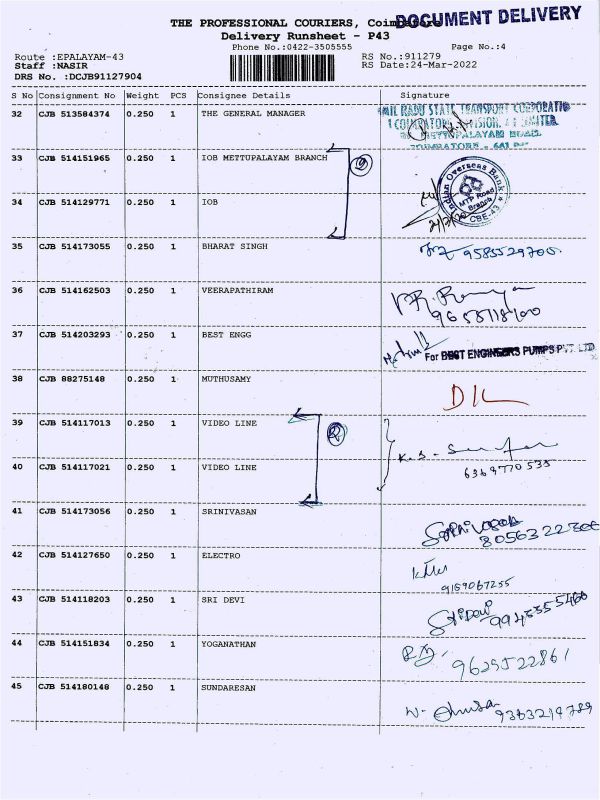 THE PROFESSIONAL COURIERS, Coimbatore
DOCUMENT DELIVERY
Delivery Runsheet - P43
Phone No.:0422-3505555 Page No.:4
Route :EPALAYAM-43 RS No.:911279
Staff :NASIR RS Date:24-Mar-2022
DRS No. :DCJB91127904
S No Consignment No Weight PCS Consignee Details Signature
32 CJB 513584374 0.250 1 THE GENERAL MANAGER
STATE TRANSPORT CORPORATIO
33 CJB 514151965 0.250 1 IOB METTUPALAYAM BRANCH
2
Indian Overseas Bank
MTP Road
Branch
CBE-43
34 CJB 514129771 0.250 1 IOB
35 CJB 514173055 0.250 1 BHARAT SINGH 9585529700
36 CJB 514162503 0.250 1 VEERAPATHIRAM
37 CJB 514203293 0.250 1 BEST ENGG For BEST ENGINEERS PUMPS PVT. LTD.
38 CJB 88275148 0.250 1 MUTHUSAMY
39 CJB 514117013 0.250 1 VIDEO LINE
2
40 CJB 514117021 0.250 1 VIDEO LINE 6369770535
41 CJB 514173056 0.250 1 SRINIVASAN
42 CJB 514127650 0.250 1 ELECTRO
9159067255
43 CJB 514118203 0.250 1 SRI DEVI Sri Devi
44 CJB 514151834 0.250 1 YOGANATHAN 9629522861
45 CJB 514180148 0.250 1 SUNDARESAN 9363219789